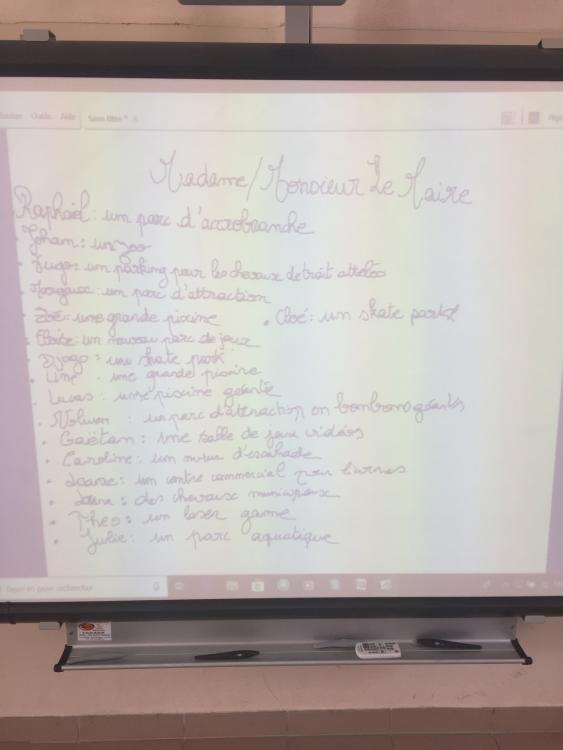 Guide Aide Sans titre *
Madame/Monsieur Le Maire
Raphaël: un parc d'accrobranche
Joham: un zoo
Jugo: un parking pour les chevaux de trait attelés
Morgane: un parc d'attraction
Zoé: une grande piscine • Cloé: un skate park
un nouveau parc de jeux
Django: un skate park
Line : une grande piscine
Lucas: une piscine géante
Nolwen : un parc d'attraction en bonbons géants
Gaëtan: une salle de jeux vidéos
Caroline: un mur d'escalade
un centre commercial pour livres
des chevaux municipaux
Théo: un laser game
Julie: un parc aquatique
Taper ici pour rechercher